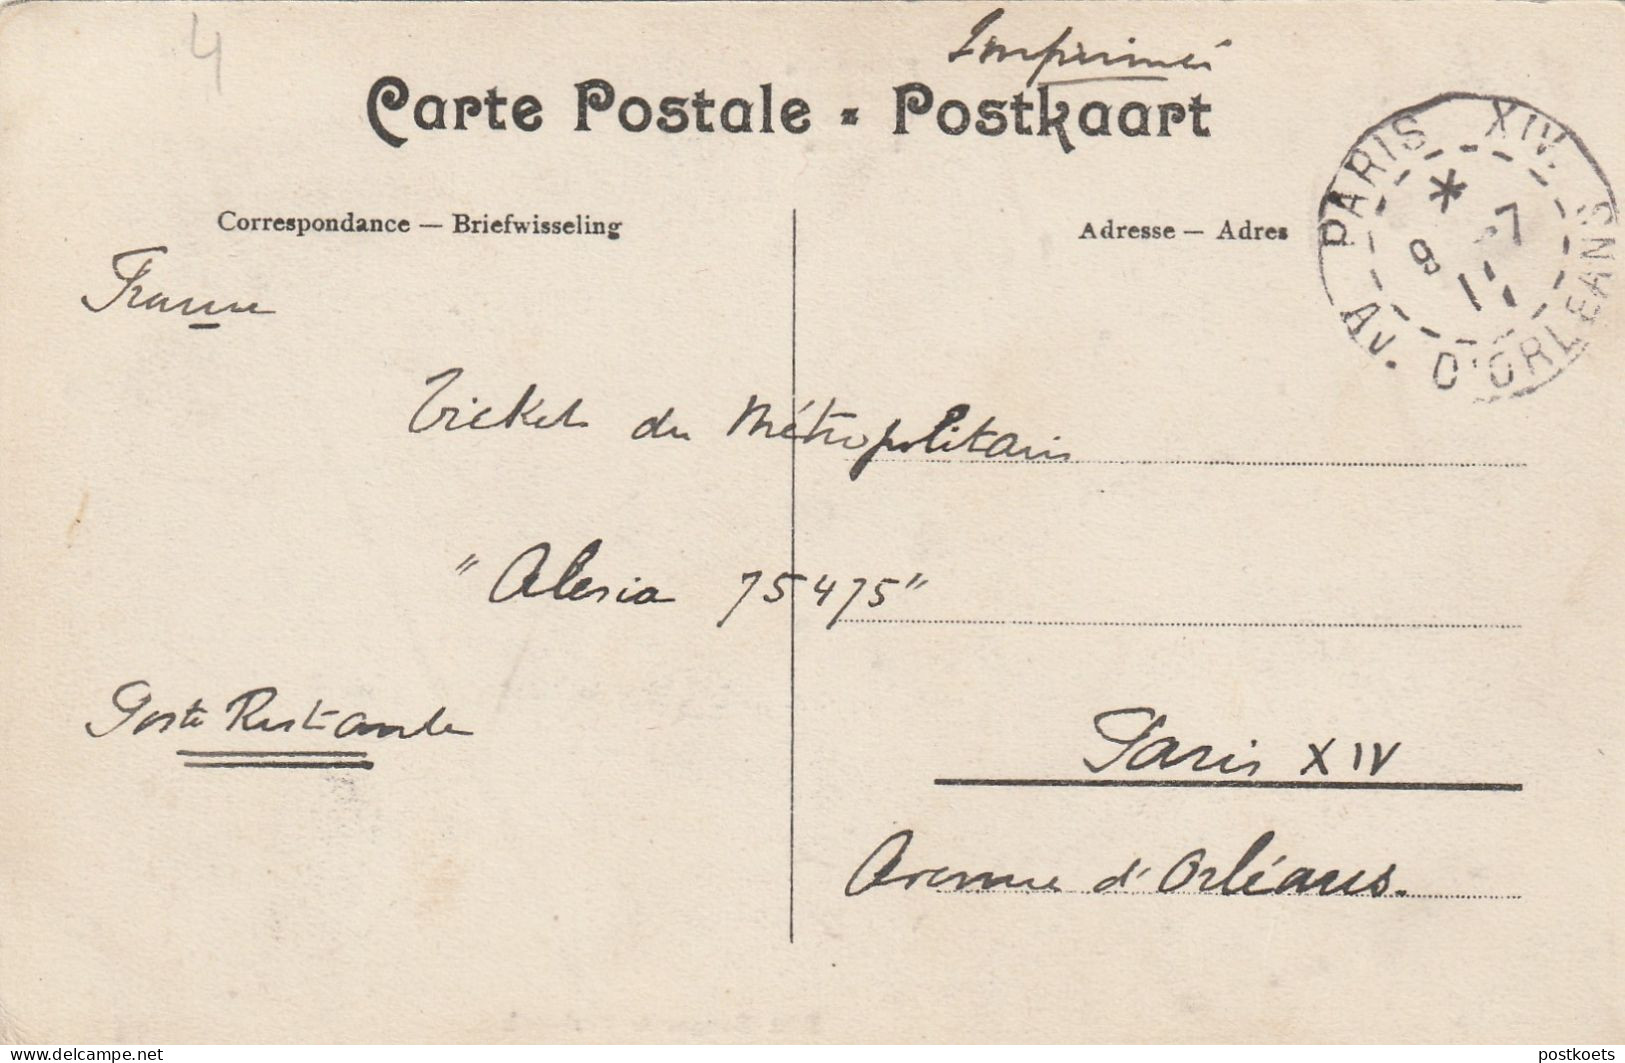 4
Imprimé
Carte Postale - Postkaart
PARIS XIV.
AV. D'ORLEANS
* 9 -7 11
Correspondance — Briefwisseling
Adresse — Adres
France
Ticket du Métropolitain
"Alesia 75475"
Poste Restante
Paris XIV
Avenue d'Orléans.
delcampe.net
postkoets